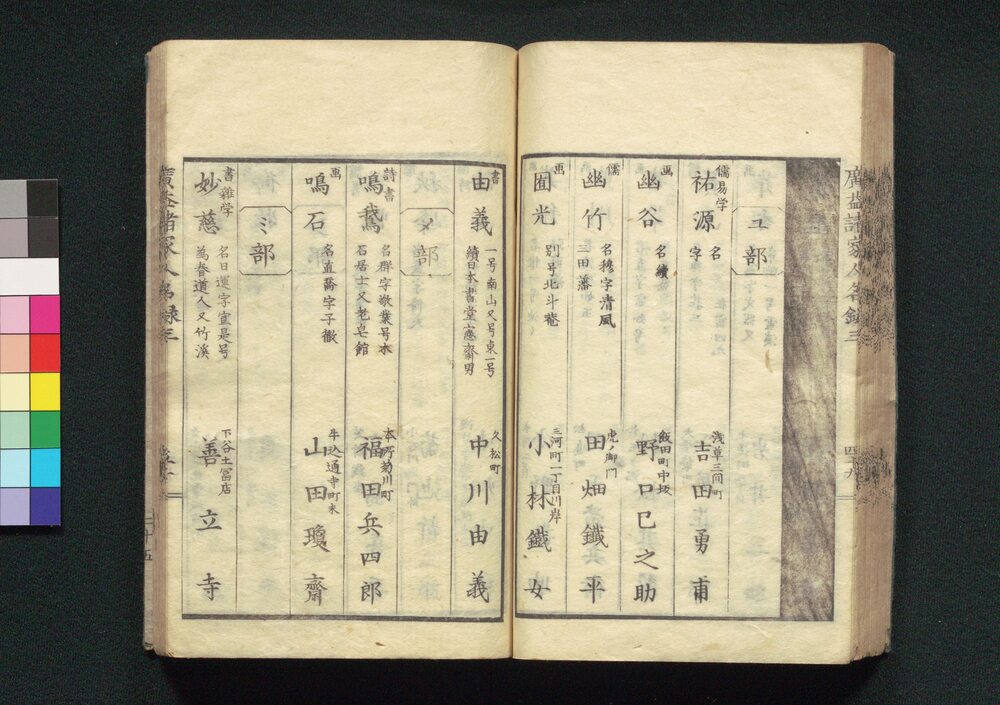 廣益諸家人名録三
ユ部
儒易学
祐源
名
字
浅草三間町
吉田勇甫
画
幽谷
名續
飯田町中坂
野口巳之助
儒
幽竹
名穆字清風
三田藩
虎ノ御門
田畑鐵平
画
囿光
別号北斗菴
三河町一丁目川岸
小林鐵女
書
由義
一号南山又号東一号
續日本書堂憲齋男
久松町
中川由義
メ部
詩書
鳴鵞
名群字敬業号木
石居士又老皂館
本所菊川町
福田兵四郎
画
鳴石
名直喬字子徹
牛込通寺町末
山田瓊齋
ミ部
書雜学
妙慈
名日運字宣是号
為誉道人又竹溪
下谷土冨店
善立寺
廣益諸家人名録三
二十五